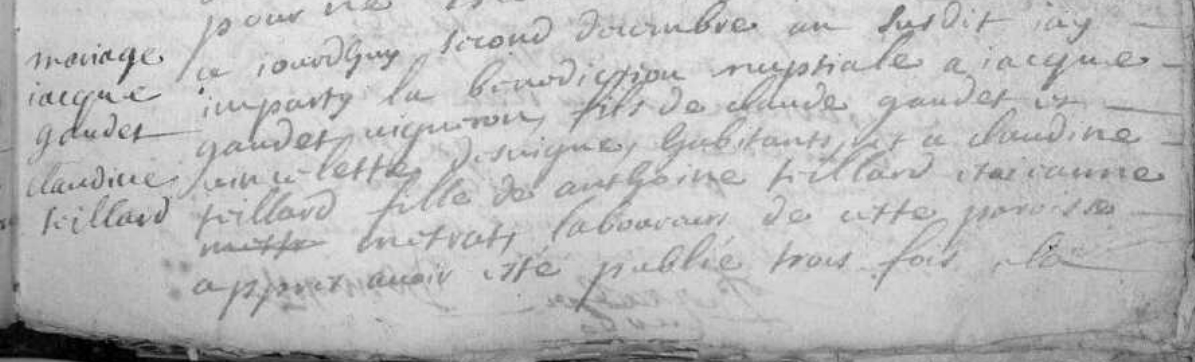 pour
mariage
jacque
gaudet
claudine
teillard
ce jourdhuy second decembre an susdit jay
imparty la benediction nuptiale a jacque
gaudet vigneron, fils de claude gaudet et
habitants, et a claudine
teillard fille de anthoine teillard et
metrat, laboureurs de cette paroisse
appres avoir esté publié trois fois la